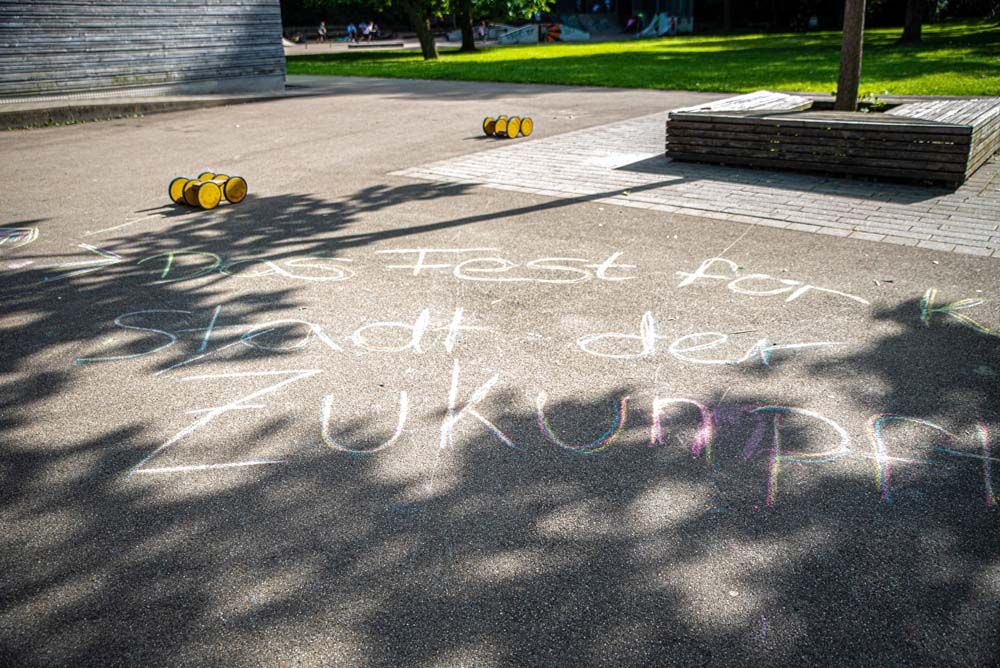 Das Fest for K
Stadt der
Zukunpft